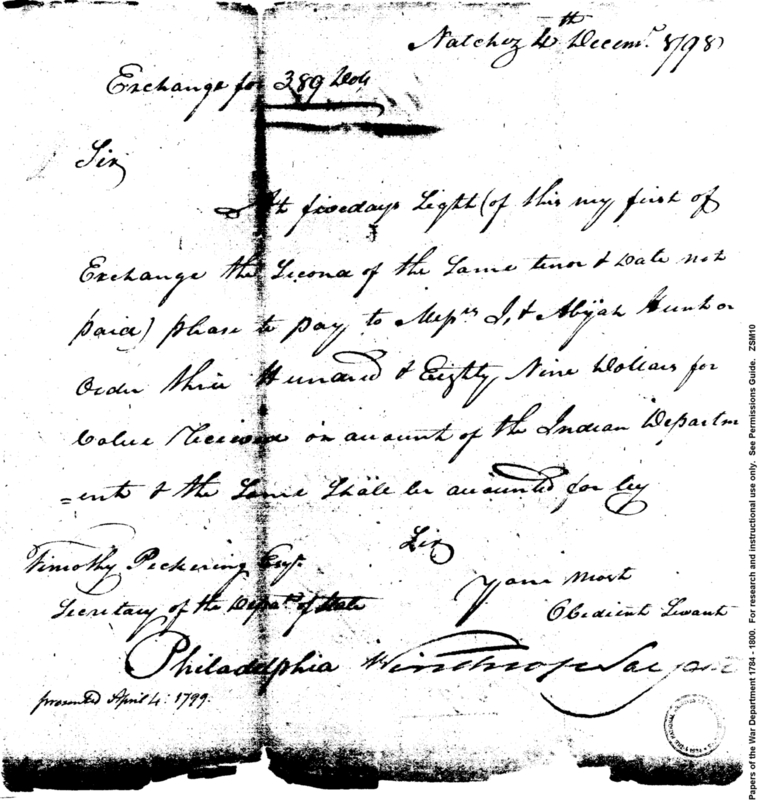 Natchez 4th Decemr. 1798
Exchange for 389 Dols
Sir
At five days Sight (of this my first of
Exchange the Second of the Same tenor & Date not
paid) please to pay to Messrs J, & Abijah Hunt or
Order three Hundred & Eighty Nine Dollars for
Value Received on account of the Indian Departm
=ent & the Same Shall be accounted for by
Sir
Your Most
Obedient Servant
Winthrop Sargent
Timothy Pickering Esqr.
Secretary of the Depart. of State
Philadelphia
presented April 4. 1799.
Papers of the War Department 1784 - 1800. For research and instructional use only. See Permissions Guide. ZSM10